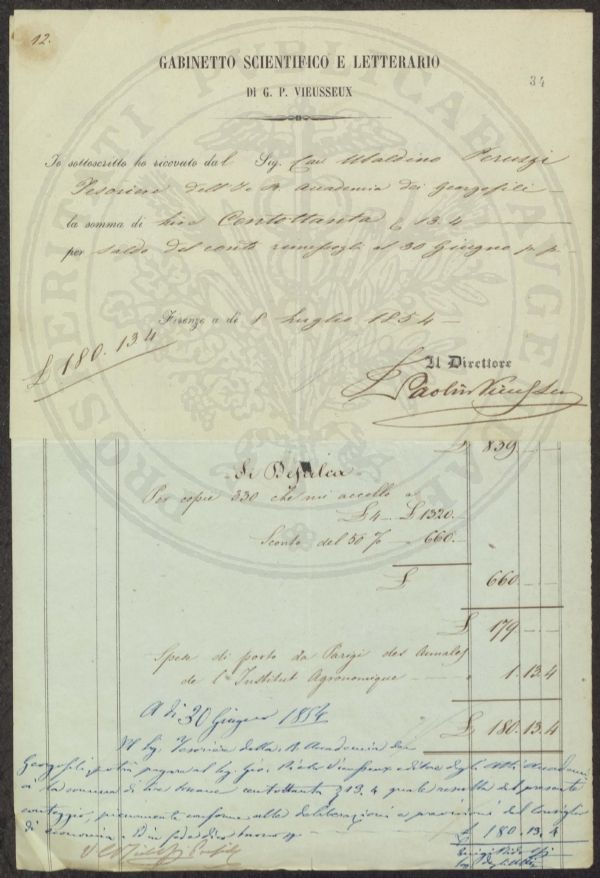 12.
34
GABINETTO SCIENTIFICO E LETTERARIO
DI G. P. VIEUSSEUX
Io sottoscritto ho ricevuto dal Sig. Cav Ubaldino Peruzzi
Tesoriere dell' I e R Accademia dei Georgofili
la somma di Lire Centottanta £ 13.4
per saldo del conto a 30 Giugno p. p.
Firenze a dì 8 Luglio 1854
£ 180. 13.4
Il Direttore
Vieusseux
£ 839.
Si Defalca
Per copie 330 che mi accollo a
£ 4 - £ 1320.-
Sconto del 50 % 660.-
£ 660
£ 179
Spese di porto da Parigi des Annales
de l'Institut Agronomique 1.13.4
A dì 20 Giugno 1854
£ 180.13.4
Il Sig. Tesoriere della R. Accademia dei
Georgofili potrà pagare al Sig. Gio. Pietro Vieusseux editore degli Atti
la somma di lire centottanta £ 13.4 quale resulta dal presente
conteggio, pienamente conforme alle deliberazioni del Consiglio
di economia
£ 180.13.4